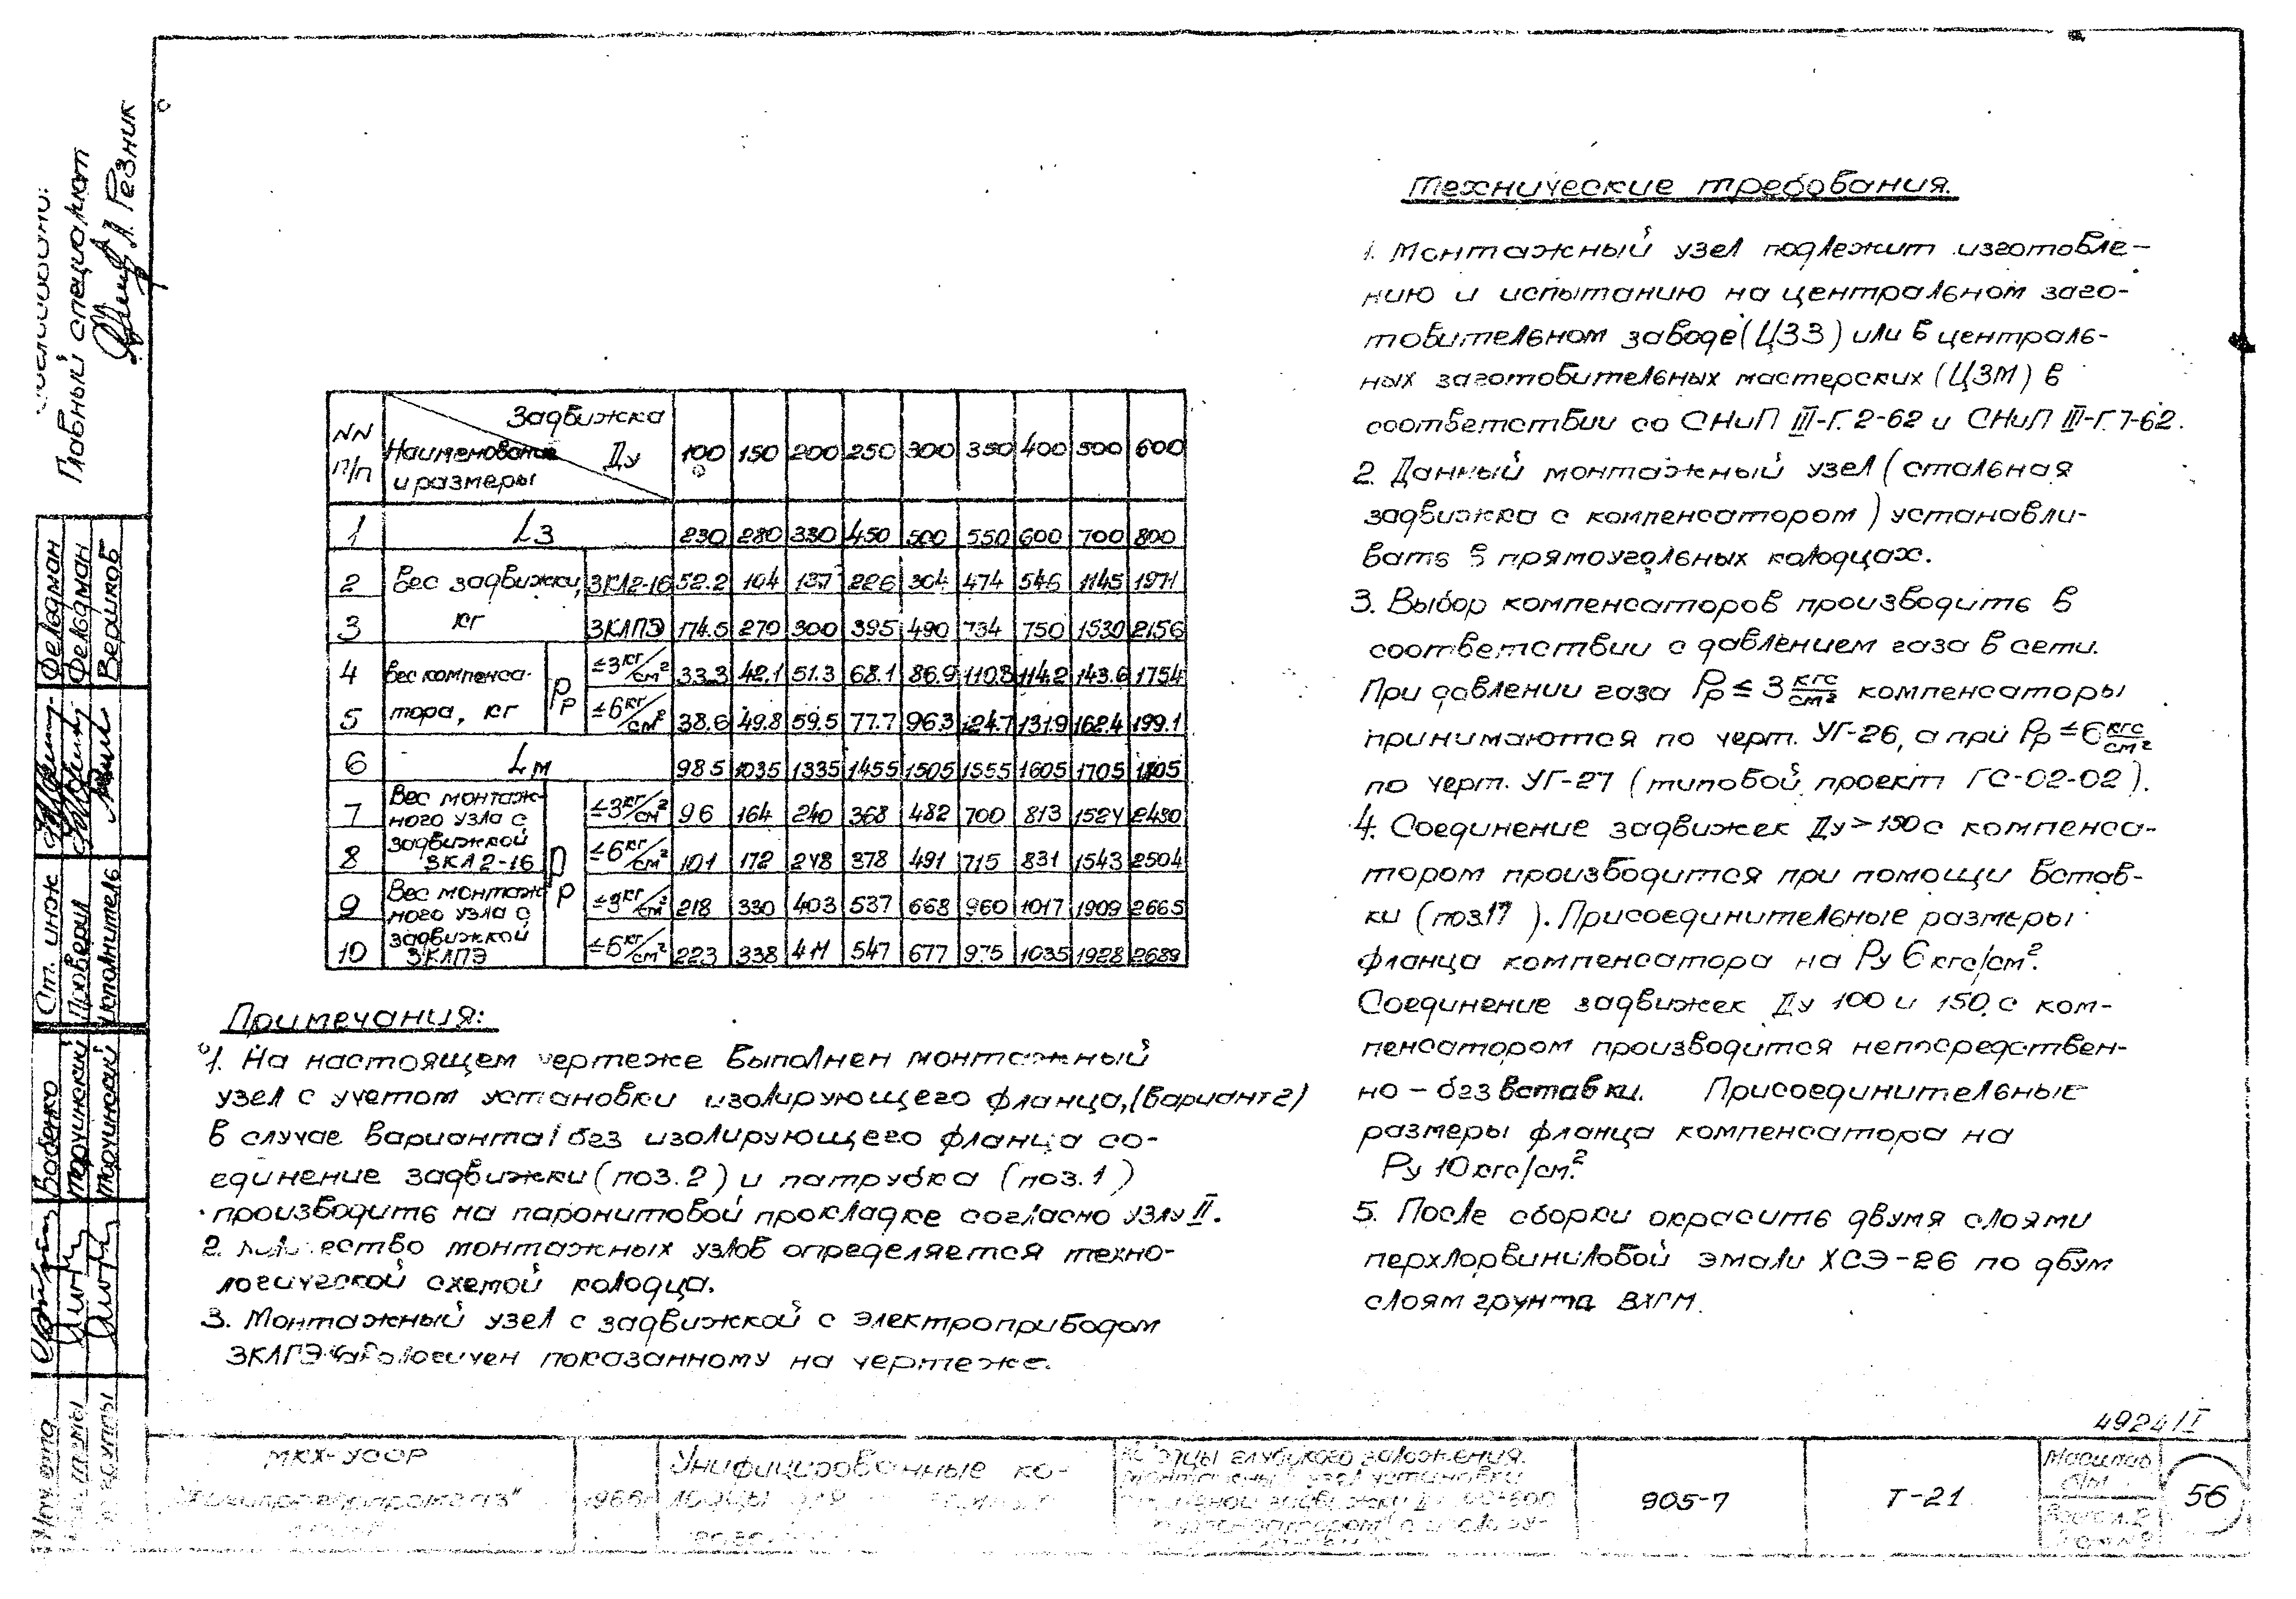 Главный специалист
А. Резник
NN п/п Наименование и размеры Задвижка Ду 100 150 200 250 300 350 400 500 600
1 Lз 230 280 330 450 500 550 600 700 800
2 Вес задвижки, кг ЗКЛ2-16 52.2 104 137 226 304 474 546 1145 1971
3 ЗКЛПЭ 174.5 270 300 395 490 734 750 1530 2156
4 Вес компенсатора, кг Рр ≤3 кг/см² 33.3 42.1 51.3 68.1 86.9 110.8 114.2 143.6 175.4
5 ≤6 кг/см² 38.6 49.8 59.5 77.7 96.3 124.7 131.9 162.4 199.1
6 Lм 985 1035 1335 1455 1505 1555 1605 1705 1805
7 Вес монтажного узла с задвижкой ЗКЛ2-16 Рр ≤3 кг/см² 96 164 240 368 482 700 813 1524 2480
8 ≤6 кг/см² 101 172 248 378 491 715 831 1543 2504
9 Вес монтажного узла с задвижкой ЗКЛПЭ ≤3 кг/см² 218 330 403 537 668 960 1017 1909 2665
10 ≤6 кг/см² 223 338 411 547 677 975 1035 1928 2689
Примечания:
1. На настоящем чертеже выполнен монтажный
узел с учетом установки изолирующего фланца, (вариант 2)
В случае варианта 1 без изолирующего фланца со-
единение задвижки (поз. 2) и патрубка (поз. 1)
производить на паронитовой прокладке согласно узлу II.
2. монтажных узлов определяется техно-
логической схемой колодца.
3. Монтажный узел с задвижкой с электроприводом
ЗКЛПЭ аналогичен показанному на чертеже.
Технические требования.
1. Монтажный узел подлежит изготовле-
нию и испытанию на центральном заго-
товительном заводе (ЦЗЗ) или в централь-
ных заготовительных мастерских (ЦЗМ) в
соответствии со СНиП III-Г.2-62 и СНиП III-Г.7-62.
2. Данный монтажный узел (стальная
задвижка с компенсатором) устанавли-
вать в прямоугольных колодцах.
3. Выбор компенсаторов производить в
соответствии с давлением газа в сети.
При давлении газа Рр ≤ 3 кгс/см² компенсаторы
принимаются по черт. УГ-26, а при Рр ≤ 6 кгс/см²
по черт. УГ-27 (типовой проект ГС-02-02).
4. Соединение задвижек Ду > 150 с компенса-
тором производится при помощи встав-
ки (поз.17 ). Присоединительные размеры
фланца компенсатора на Ру 6 кгс/см².
Соединение задвижек Ду 100 и 150 с ком-
пенсатором производится непосредствен-
но – без вставки. Присоединительные
размеры фланца компенсатора на
Ру 10 кгс/см².
5. После сборки окрасить двумя слоями
перхлорвиниловой эмали ХСЭ-26 по двум
слоям грунта ВХГМ.
Ст. инж. Фельдман
Проверил Фельдман
Исполнитель Вершков
Бабенко
Торчинский
Торчинский
4924/I
МКХ-УССР
1966г.
Унифицированные ко-
лодцы для
Колодцы глубокого заложения.
Монтажный узел установки
стальной задвижки Ду 100-600
905-7
Т-21
Масштаб
б/м
56